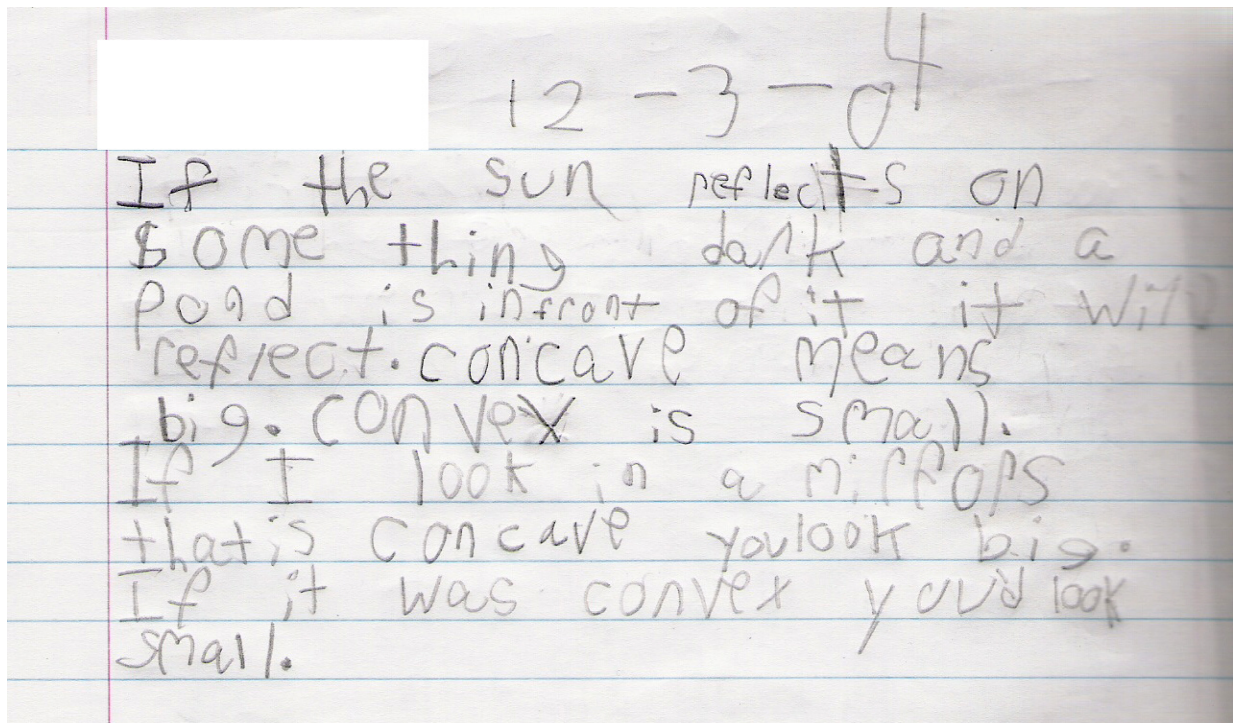 12-3-04
If the sun reflects on
some thing dark and a
pond is infront of it it will
reflect. concave means
big. convex is small.
If I look in a mirrors
that is concave you look big.
If it was convex youd look
small.